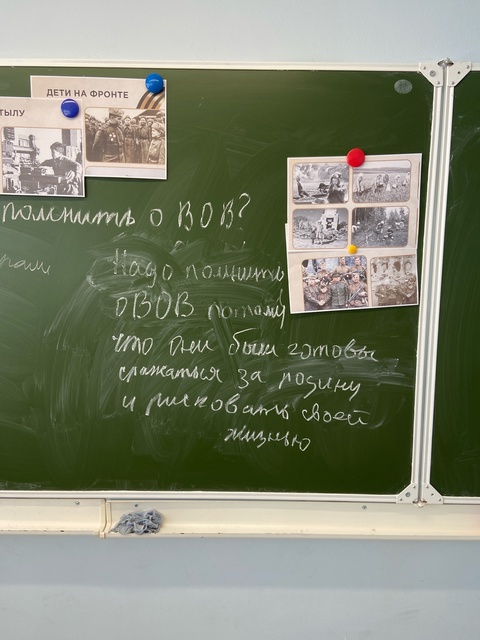 ДЕТИ НА ФРОНТЕ
ТЫЛУ
помнить о ВОВ?
Надо помнить
о ВОВ потому
что они были готовы
сражаться за родину
и рисковать своей
жизнью